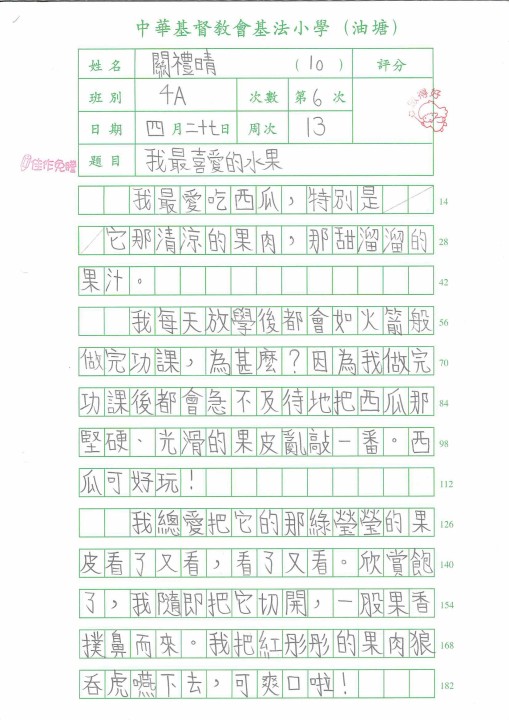 中華基督教會基法小學（油塘）
姓名 關禮晴 （10） 評分
班別 4A 次數 第6次
日期 四月二十七日 周次 13
題目 我最喜愛的水果
佳作免謄
我最愛吃西瓜，特別是 14
它那清涼的果肉，那甜溜溜的 28
果汁。 42
我每天放學後都會如火箭般 56
做完功課，為甚麼？因為我做完 70
功課後都會急不及待地把西瓜那 84
堅硬、光滑的果皮亂敲一番。西 98
瓜可好玩！ 112
我總愛把它的那綠瑩瑩的果 126
皮看了又看，看了又看。欣賞飽 140
了，我隨即把它切開，一股果香 154
撲鼻而來。我把紅彤彤的果肉狼 168
吞虎嚥下去，可爽口啦！ 182